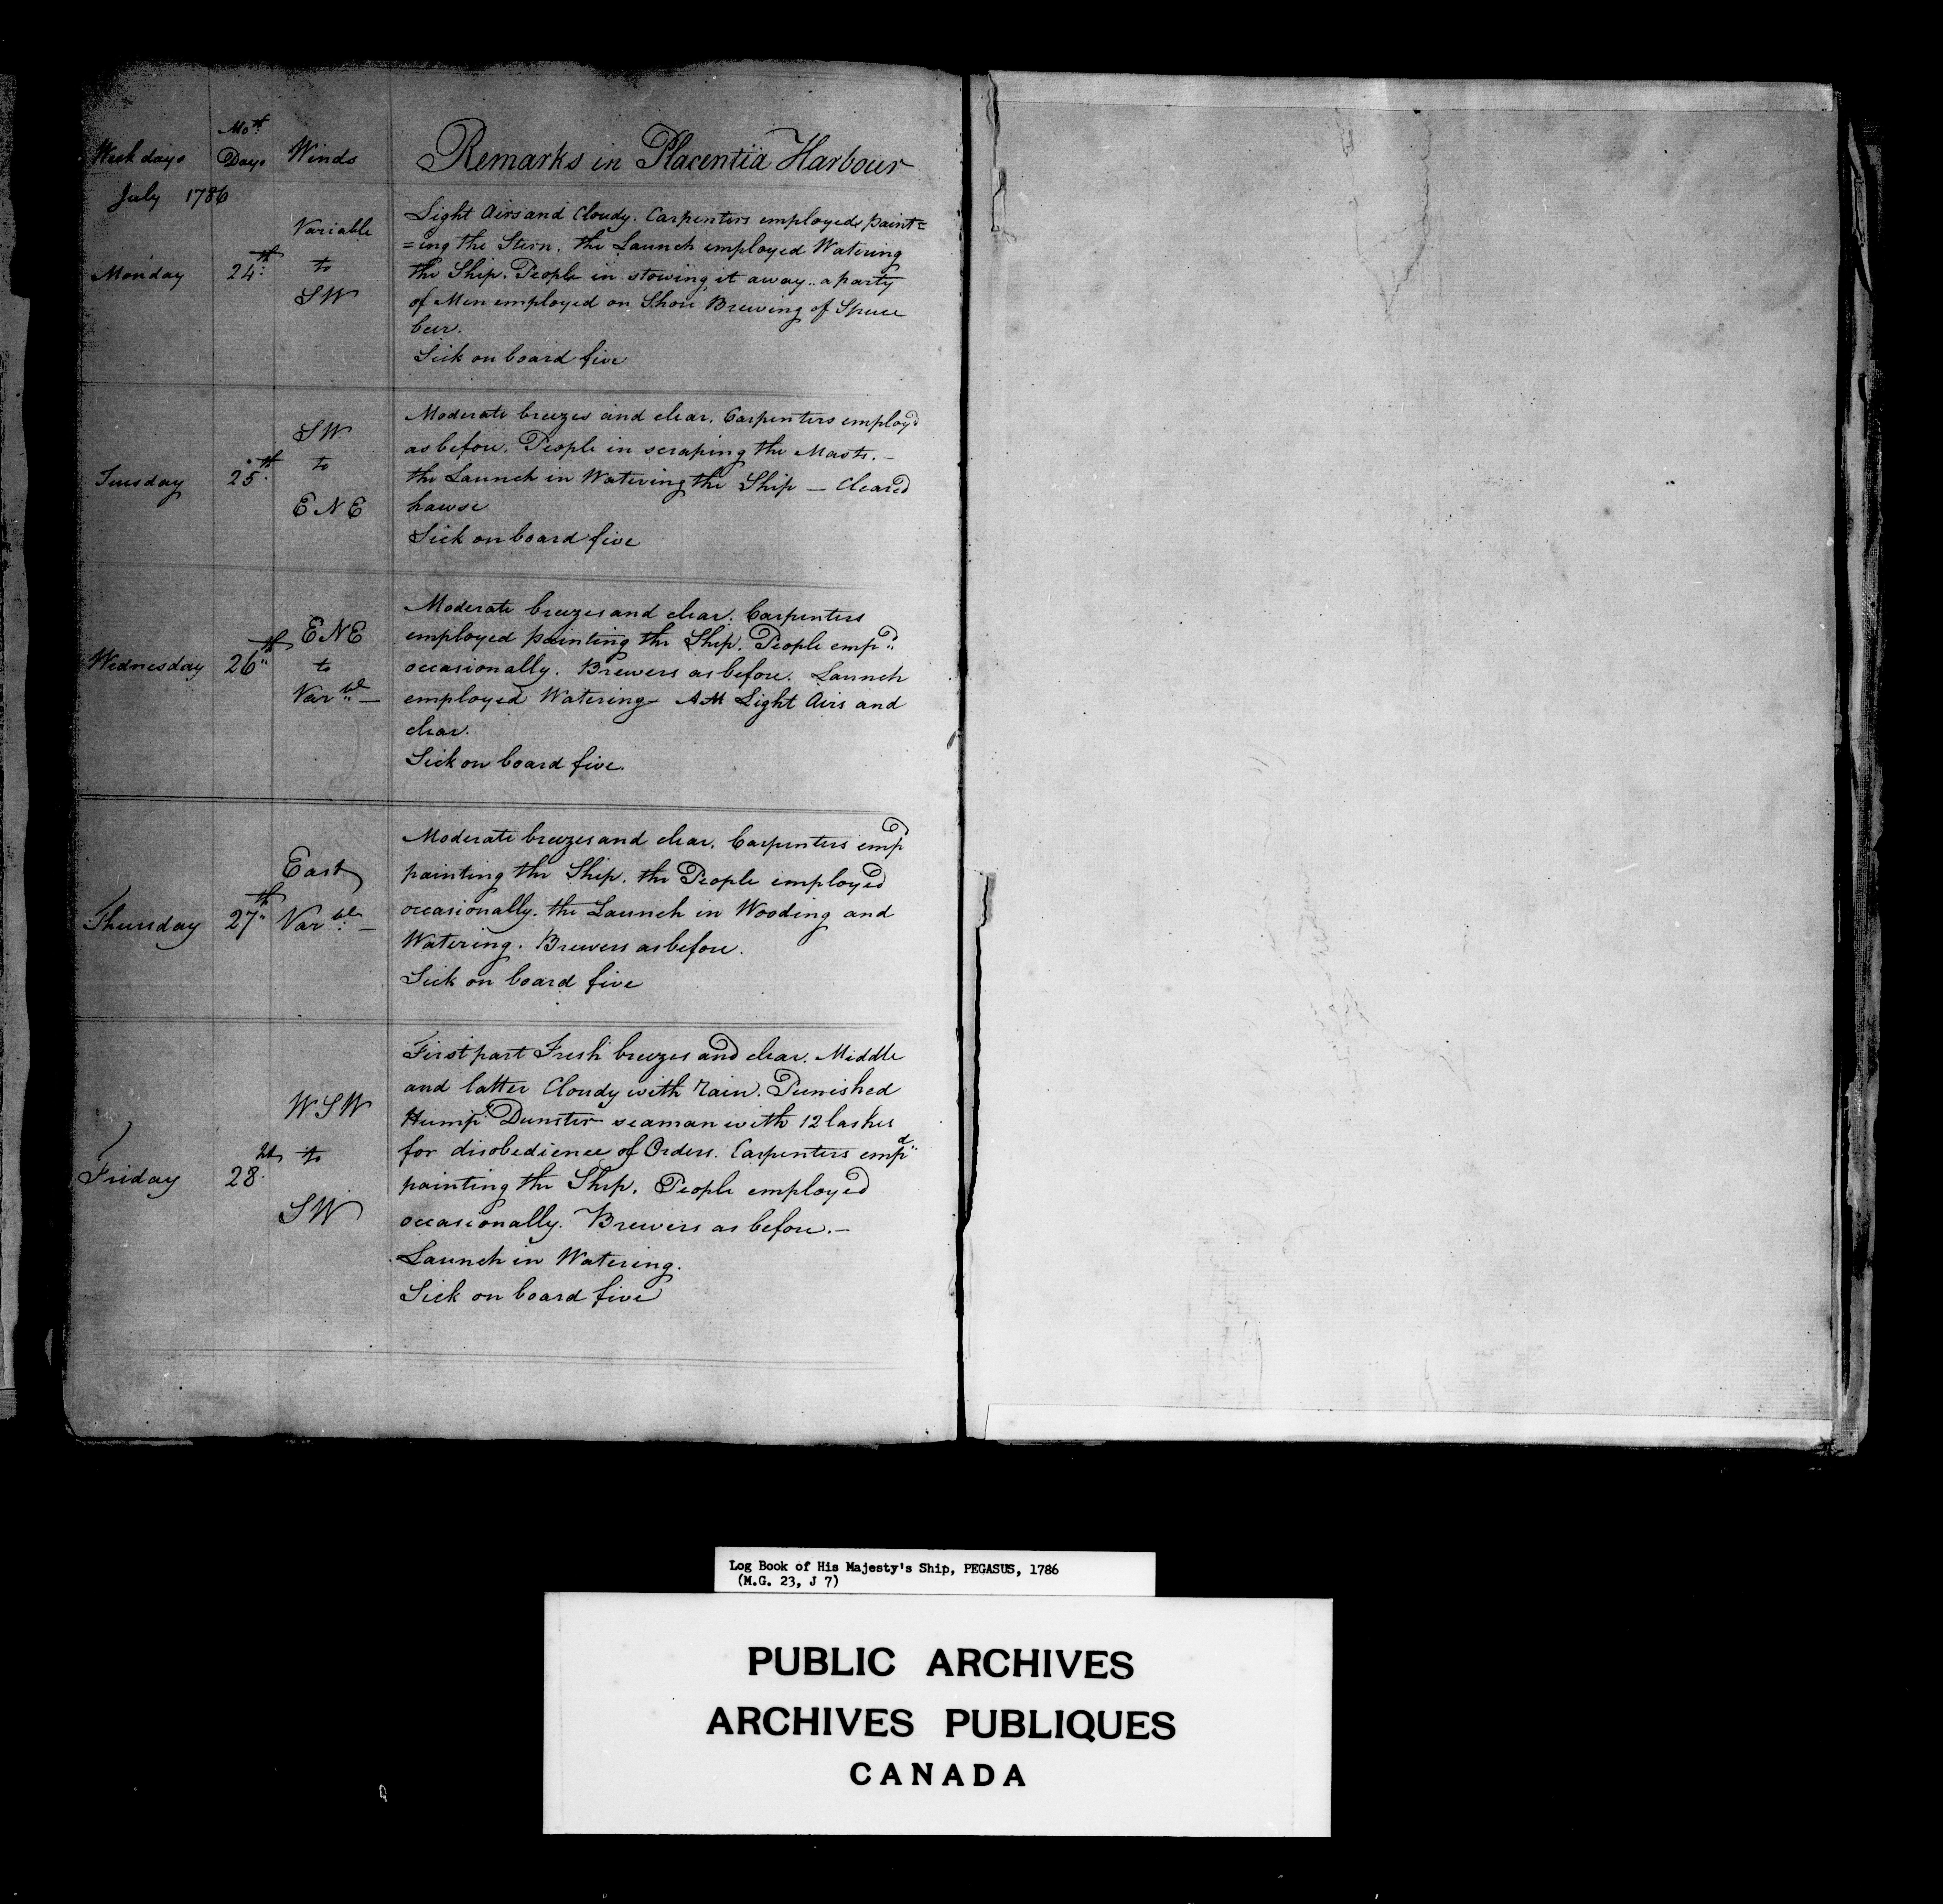 Week days Mo.th Days Winds Remarks in Placentia Harbour
July 1786
Monday 24th Variable to SW
Light Airs and Cloudy. Carpenters employed paint=
=ing the Stern. the Launch employed Watering
the Ship. People in stowing it away.. a party
of Men employed on Shore Brewing of Spruce
beer.
Sick on board five
Tuesday 25th SW to ENE
Moderate breezes and clear. Carpenters employ'd
as before. People in scraping the Masts. -
the Launch in Watering the Ship - Cleared
hawse
Sick on board five
Wednesday 26th ENE to Varble -
Moderate breezes and clear. Carpenters
employed painting the Ship. People empd
occasionally. Brewers as before. Launch
employed Watering - AM Light Airs and
clear.
Sick on board five.
Thursday 27th East Varble -
Moderate breezes and clear. Carpenters empd
painting the Ship. the People employed
occasionally. the Launch in Wooding and
Watering. Brewers as before.
Sick on board five
Friday 28th WSW to SW
First part Fresh breezes and clear. Middle
and latter Cloudy with rain. Punished
Hump Dunster seaman with 12 lashes
for disobedience of Orders. Carpenters empd
painting the Ship. People employed
occasionally. Brewers as before. -
Launch in Watering.
Sick on board five
Log Book of His Majesty's Ship, PEGASUS, 1786
(M.G. 23, J 7)
PUBLIC ARCHIVES
ARCHIVES PUBLIQUES
CANADA